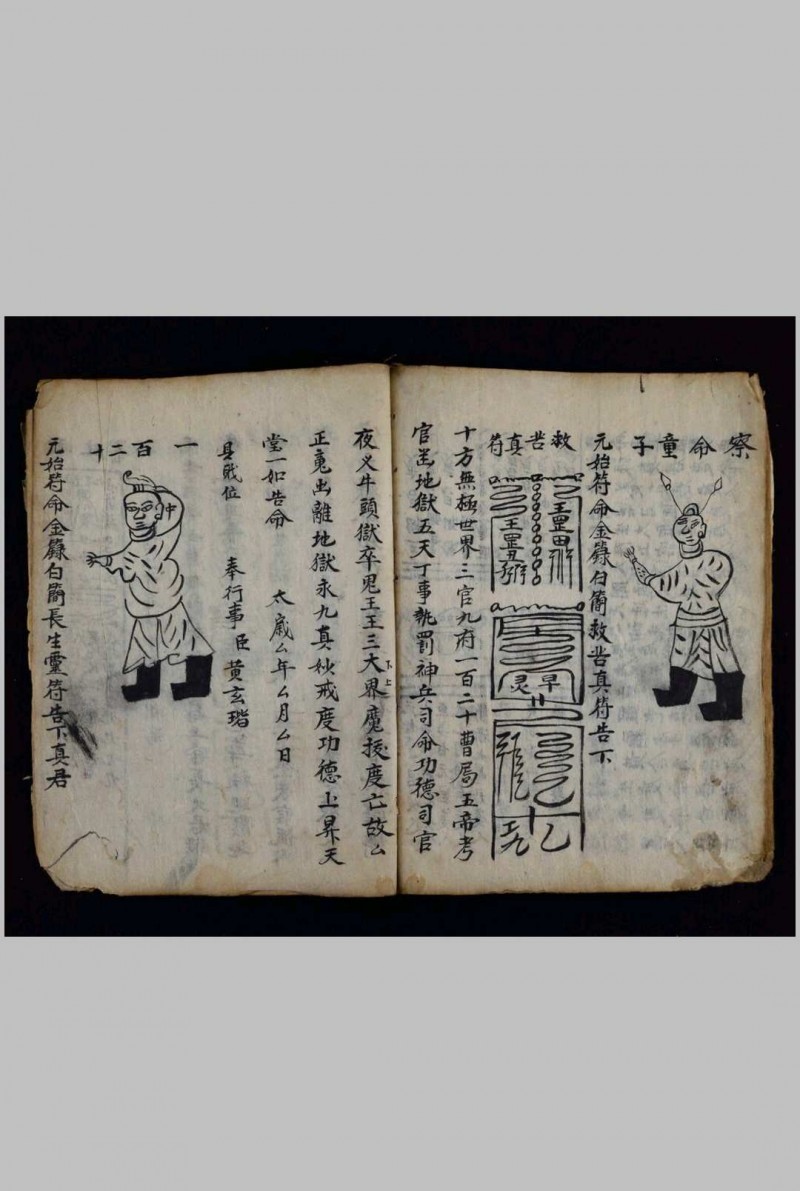 察命童子
元始符命金籙白簡救苦真符告下
救苦真符
十方無極世界三官九府一百二十曹局五帝考
官羅地獄五天丁事執罰神兵司命功德司官
夜义牛頭獄卒鬼王王三大界魔授度亡故厶
上下
正魂出離地獄永九真妙戒度功德上昇天
堂一如告命
太歲厶年厶月厶日
具职位
奉行事臣黃玄瑎
一百二十
元始符命金籙白簡長生靈符告下真君